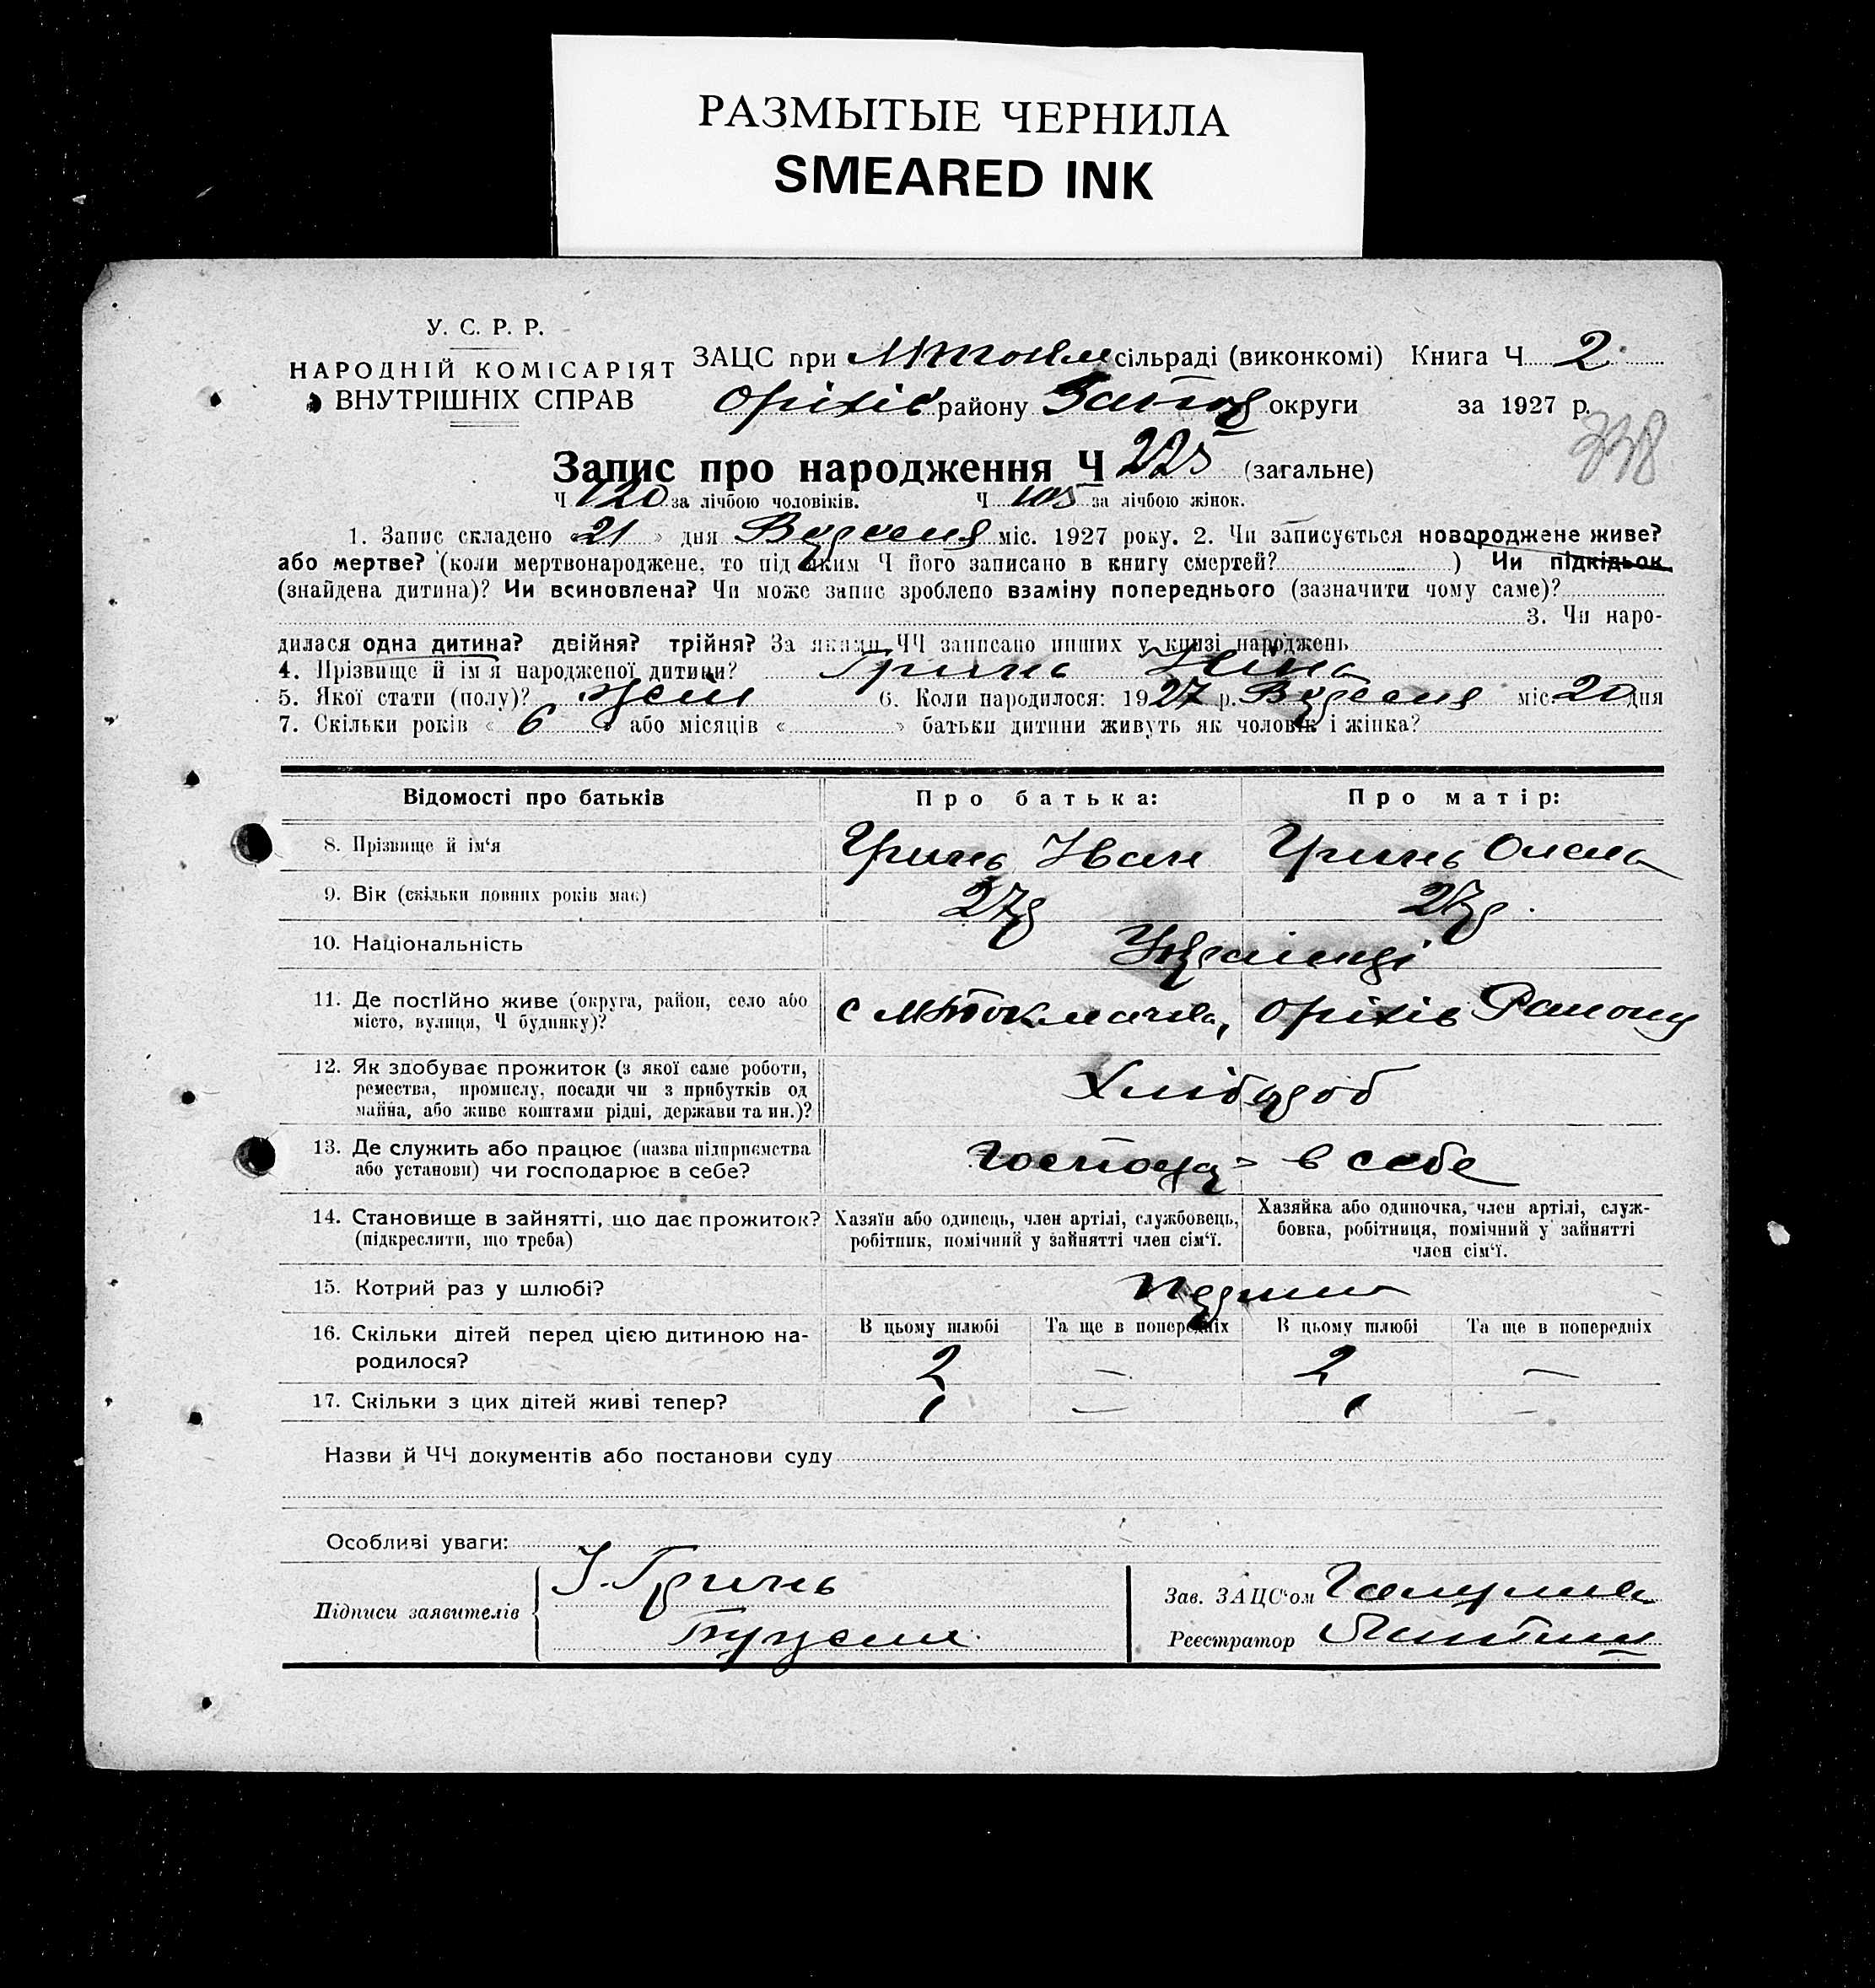 РАЗМЫТЫЕ ЧЕРНИЛА
SMEARED INK
У. С. Р. Р.
НАРОДНІЙ КОМІСАРІЯТ
ВНУТРІШНІХ СПРАВ
ЗАЦС при сільраді (виконкомі) Книга Ч 2
Оріхів району Запор округи за 1927 р.
338
Запис про народження Ч 225 (загальне)
Ч 120 за лічбою чоловіків. Ч 105 за лічбою жінок.
1. Запис складено «21» дня Вересня міс. 1927 року. 2. Чи записується новороджене живе?
або мертве? (коли мертвонароджене, то під яким Ч його записано в книгу смертей? ) Чи підкідьок
(знайдена дитина)? Чи всиновлена? Чи може запис зроблено взаміну попереднього (зазначити чому саме)?
3. Чи наро-
дилася одна дитина? двійня? трійня? За якими ЧЧ записано инших у книзі народжень
4. Прізвище й ім'я народженої дитини? Гринь Ніна
5. Якої стати (полу)? жін 6. Коли народилося: 1927 р. Вересня міс. 20 дня
7. Скільки років « 6 » або місяців « » батьки дитини живуть як чоловік і жінка?
Відомості про батьків Про батька: Про матір:
8. Прізвище й ім'я Гринь Іван Гринь Олена
9. Вік (скільки повних років має) 27р 27р.
10. Національність Українці
11. Де постійно живе (округа, район, село або
місто, вулиця, Ч будинку)? с М Токмачка, Оріхів Району
12. Як здобуває прожиток (з якої саме роботи,
ремества, промислу, посади чи з прибутків од
майна, або живе коштами рідні, держави та ин.)? Хлібороб
13. Де служить або працює (назва підприємства
або установи) чи господарює в себе? Господ- в себе
14. Становище в зайнятті, що дає прожиток?
(підкреслити, що треба)
Хазяїн або одинець, член артілі, службовець,
робітник, помічний у зайнятті член сім'ї.
Хазяйка або одиночка, член артілі, служ-
бовка, робітниця, помічний у зайнятті
член сім'ї.
15. Котрий раз у шлюбі?
В цьому шлюбі Та ще в попередніх В цьому шлюбі Та ще в попередніх
16. Скільки дітей перед цією дитиною на-
родилося? 2 — 2 —
17. Скільки з цих дітей живі тепер? 1 — 1 —
Назви й ЧЧ документів або постанови суду
Особливі уваги:
Підписи заявителів І. Гринь
Зав. ЗАЦС'ом
Реєстратор